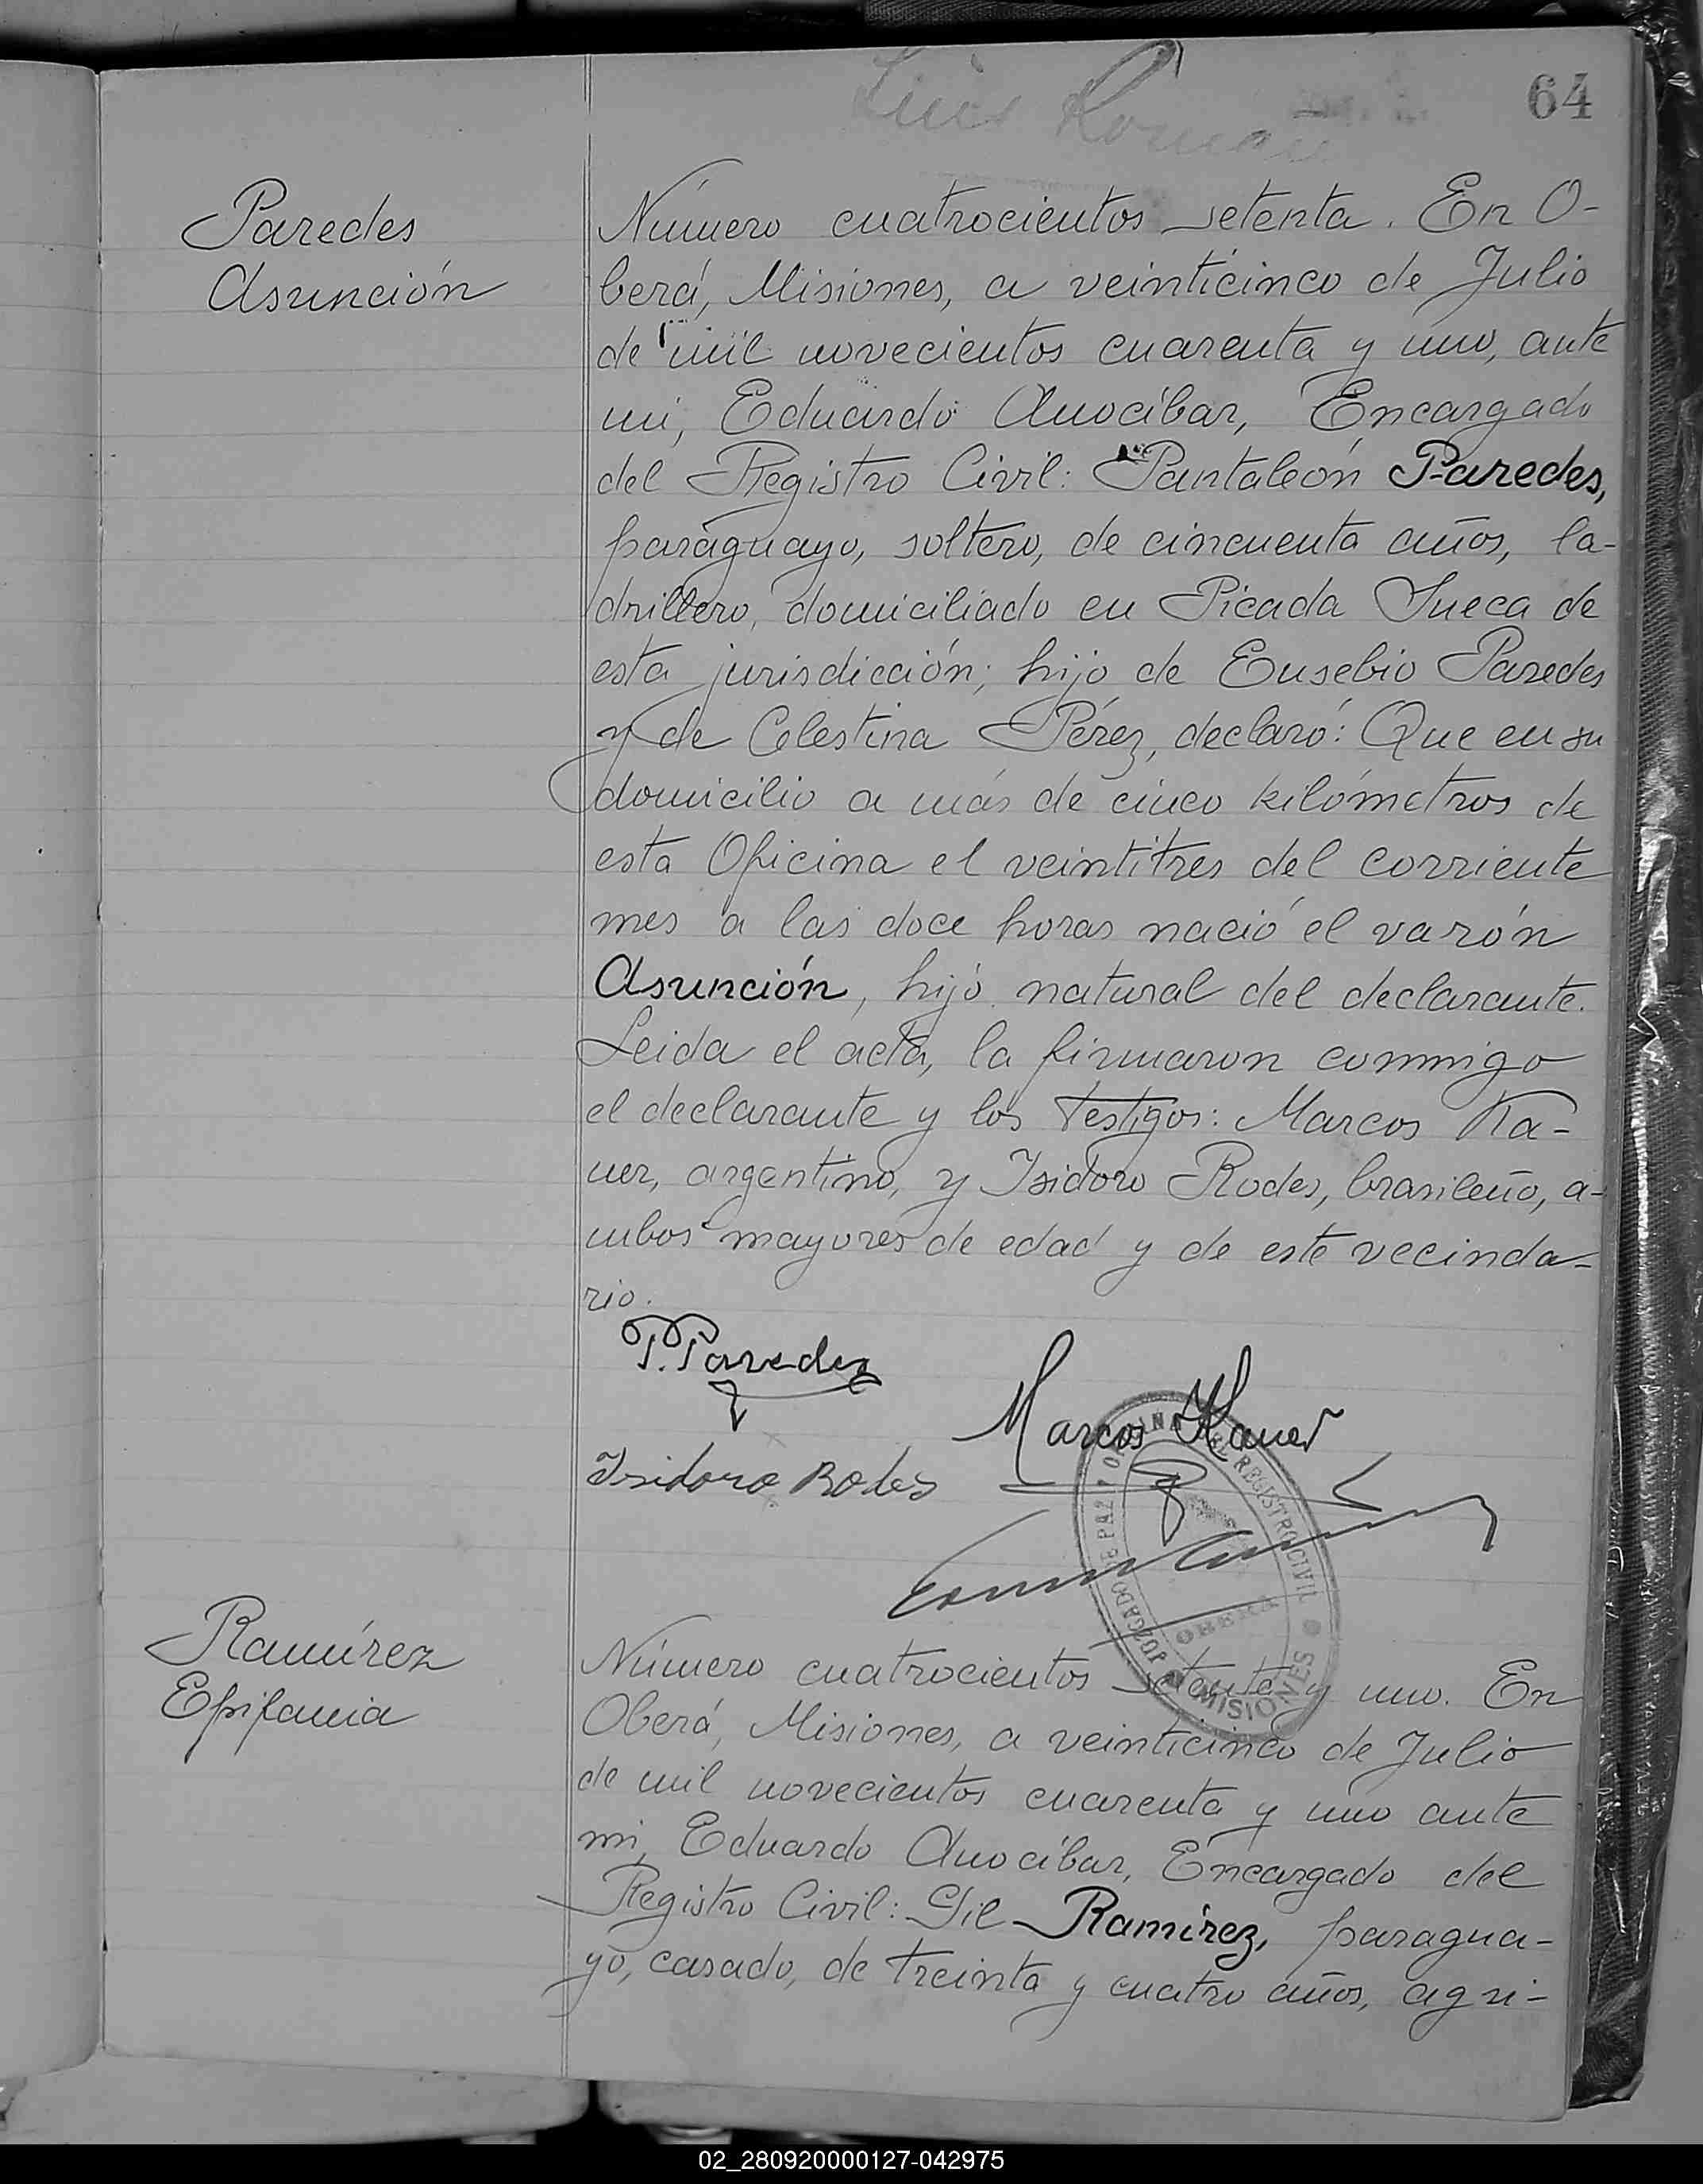 Luis Roman
64
Paredes
Asunción
Número cuatrocientos setenta. En O-
berá, Misiones, a veinticinco de Julio
de mil novecientos cuarenta y uno, ante
mi, Eduardo Anocíbar, Encargado
del Registro Civil: Pantaleón Paredes,
paraguayo, soltero, de cincuenta años, la-
drillero, domiciliado en Picada Sueca de
esta jurisdicción; hijo de Eusebio Paredes
y de Celestina Pérez, declaró: Que en su
domicilio a más de cinco kilómetros de
esta Oficina el veintitres del corriente
mes a las doce horas nació el varón
Asunción, hijo natural del declarante.
Leida el acta, la firmaron conmigo
el declarante y los testigos: Marcos Ka-
uer, argentino, y Isidoro Rodes, brasileño, a-
mbos mayores de edad y de este vecinda-
rio.
P. Paredes
Marcos Kauer
Isidoro Rodes
JUZGADO DE PAZ Y OFICINA DEL REGISTRO CIVIL
OBERA
MISIONES
Ramírez
Epifania
Número cuatrocientos setenta y uno. En
Oberá, Misiones, a veinticinco de Julio
de mil novecientos cuarenta y uno ante
mi, Eduardo Anocíbar, Encargado del
Registro Civil: Gil Ramírez, paragua-
yo, casado, de treinta y cuatro años, agri-
02_280920000127-042975